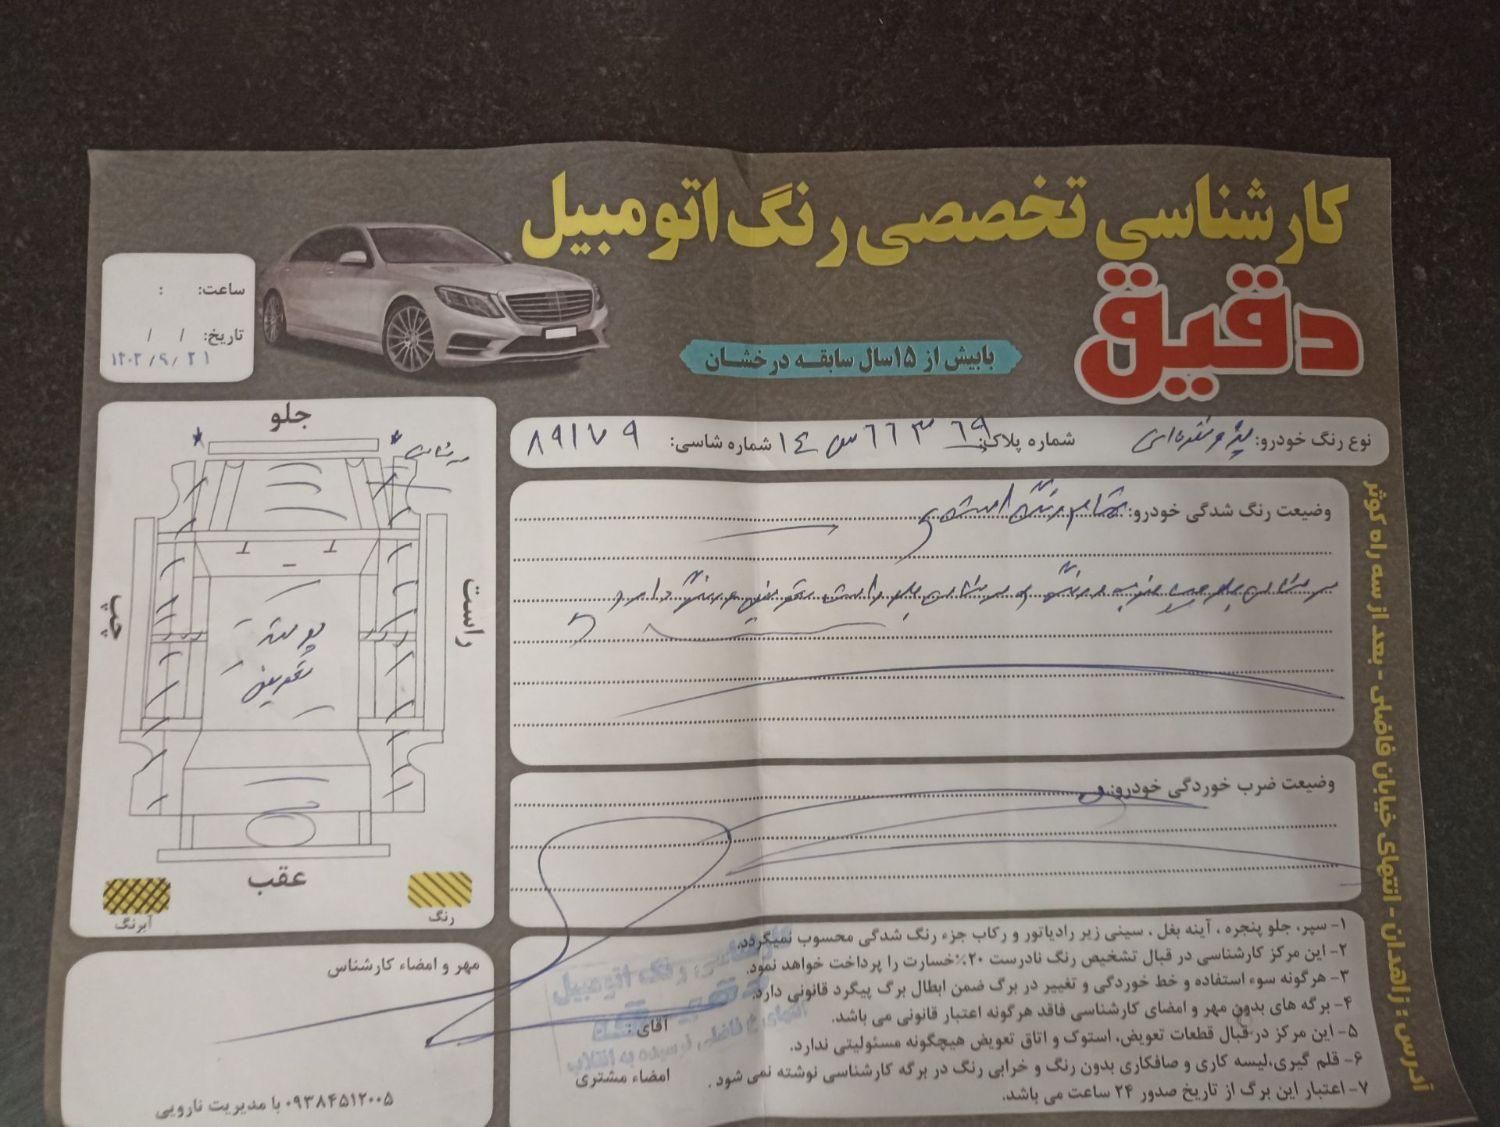 کارشناسی تخصصی رنگ اتومبیل
دقیق
بابیش از ۱۵سال سابقه درخشان
ساعت: :
تاریخ: / /
۱۴۰۲/۹/۲۱
نوع رنگ خودرو: پژو نقره‌ای شماره پلاک: ۶۹ ۶۶۳ س ۱۴ شماره شاسی: ۸۹۱۷۹
وضیعت رنگ شدگی خودرو: تمام رنگ است
وضیعت ضرب خوردگی خودرو:
جلو
چپ
راست
پوسته
تعویض
عقب
آبرنگ
رنگ
۱- سپر، جلو پنجره ، آینه بغل ، سینی زیر رادیاتور و رکاب جزء رنگ شدگی محسوب نمیگردد.
۲- این مرکز کارشناسی در قبال تشخیص رنگ نادرست ۲۰٪خسارت را پرداخت خواهد نمود.
۳- هرگونه سوء استفاده و خط خوردگی و تغییر در برگ ضمن ابطال برگ پیگرد قانونی دارد.
۴- برگه های بدون مهر و امضای کارشناسی فاقد هرگونه اعتبار قانونی می باشد.
۵- این مرکز در قبال قطعات تعویض، استوک و اتاق تعویض هیچگونه مسئولیتی ندارد.
۶- قلم گیری،لیسه کاری و صافکاری بدون رنگ و خرابی رنگ در برگه کارشناسی نوشته نمی شود .
۷- اعتبار این برگ از تاریخ صدور ۲۴ ساعت می باشد.
آقای :
امضاء مشتری
مهر و امضاء کارشناس
۰۹۳۸۴۵۱۲۰۰۵ با مدیریت نارویی
آدرس : زاهدان - انتهای خیابان فاضلی - بعد از سه راه کوثر